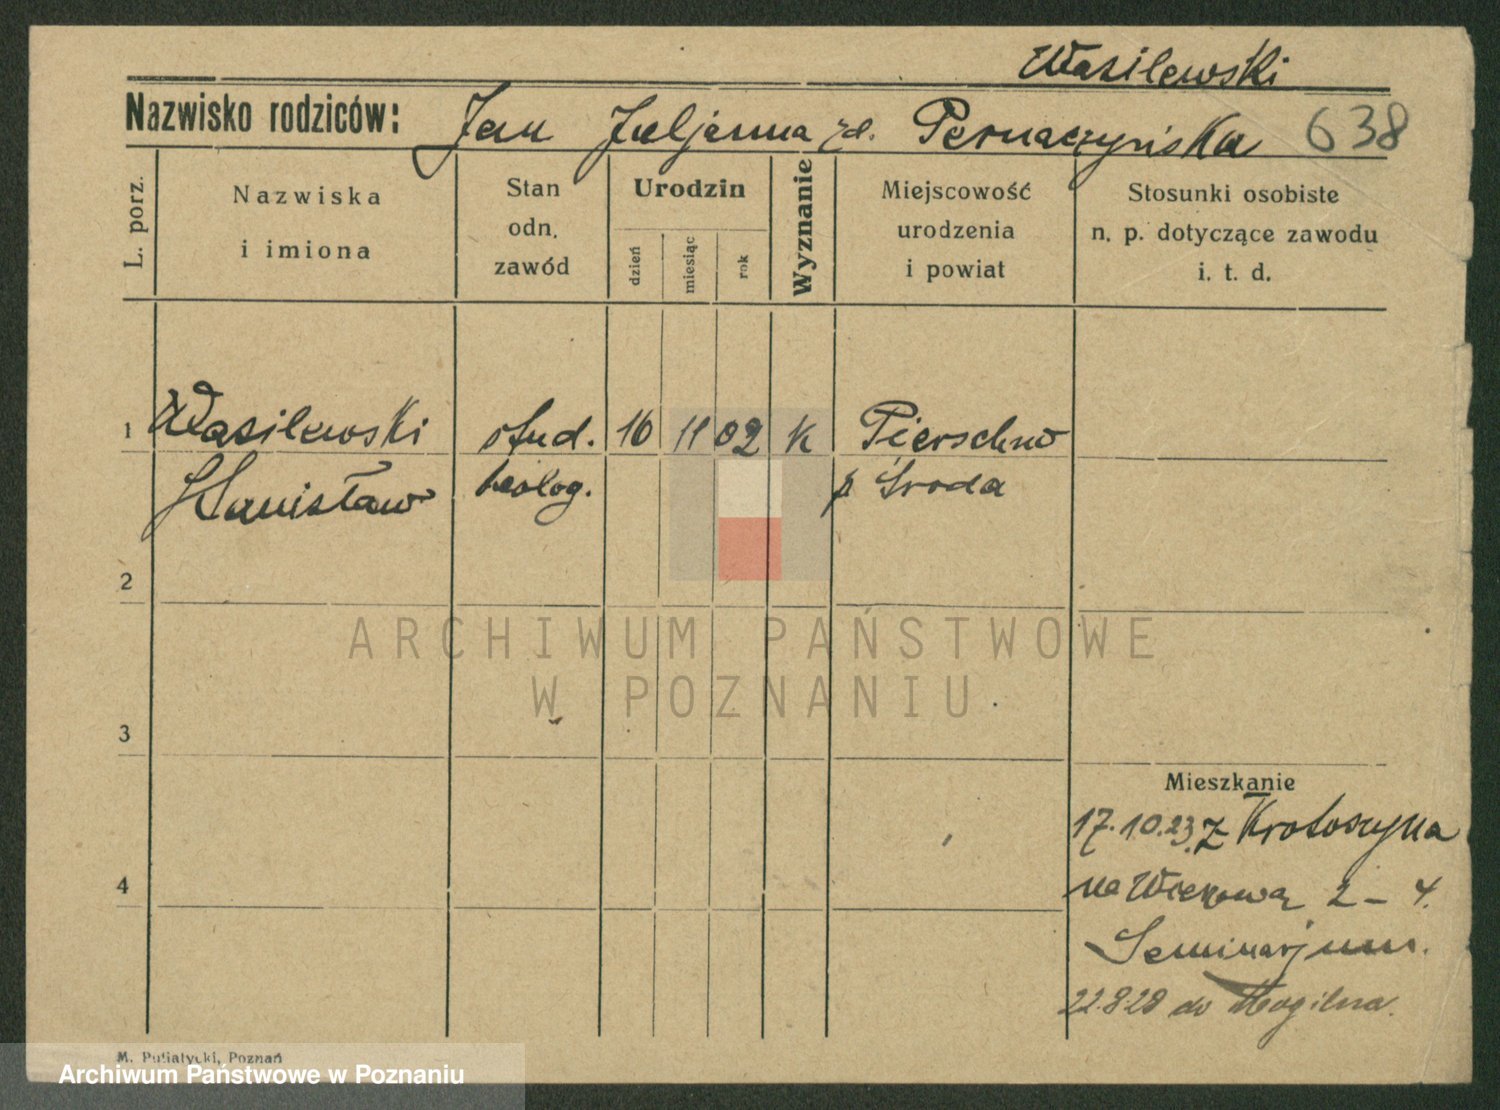 Wasilewski
Nazwisko rodziców: Jan Juljanna zd. Pernaczyńska 638
L. porz.
Nazwiska
i imiona
Stan
odn.
zawód
Urodzin
dzień
miesiąc
rok
Wyznanie
Miejscowość
urodzenia
i powiat
Stosunki osobiste
n. p. dotyczące zawodu
i. t. d.
1 Wasilewski stud. 16 11 02 K Pierschno
Stanisław teolog. p Środa
2
3
4
Mieszkanie
17.10.23. z Krotoszyna
na Wieżową 2-4.
Seminarjum.
22.8.28 do Mogilna.
ARCHIWUM PAŃSTWOWE
W POZNANIU
M. Putiatycki, Poznań
Archiwum Państwowe w Poznaniu